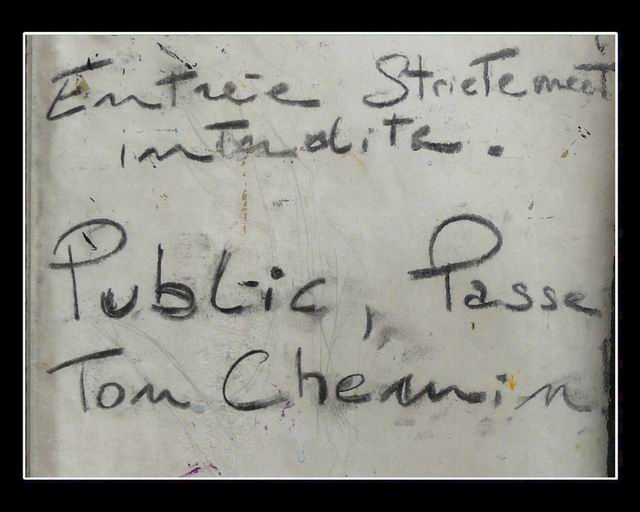 Entrée Strictement
interdite.
Public, Passe
Ton Chemin